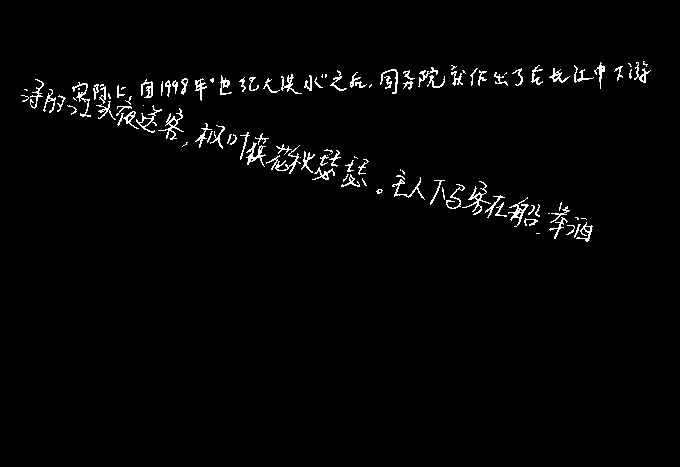 实际上,自1998年“世纪大洪水”之后,国务院就作出了在长江中下游
浔阳江头夜送客,枫叶荻花秋瑟瑟。主人下马客在船,举酒